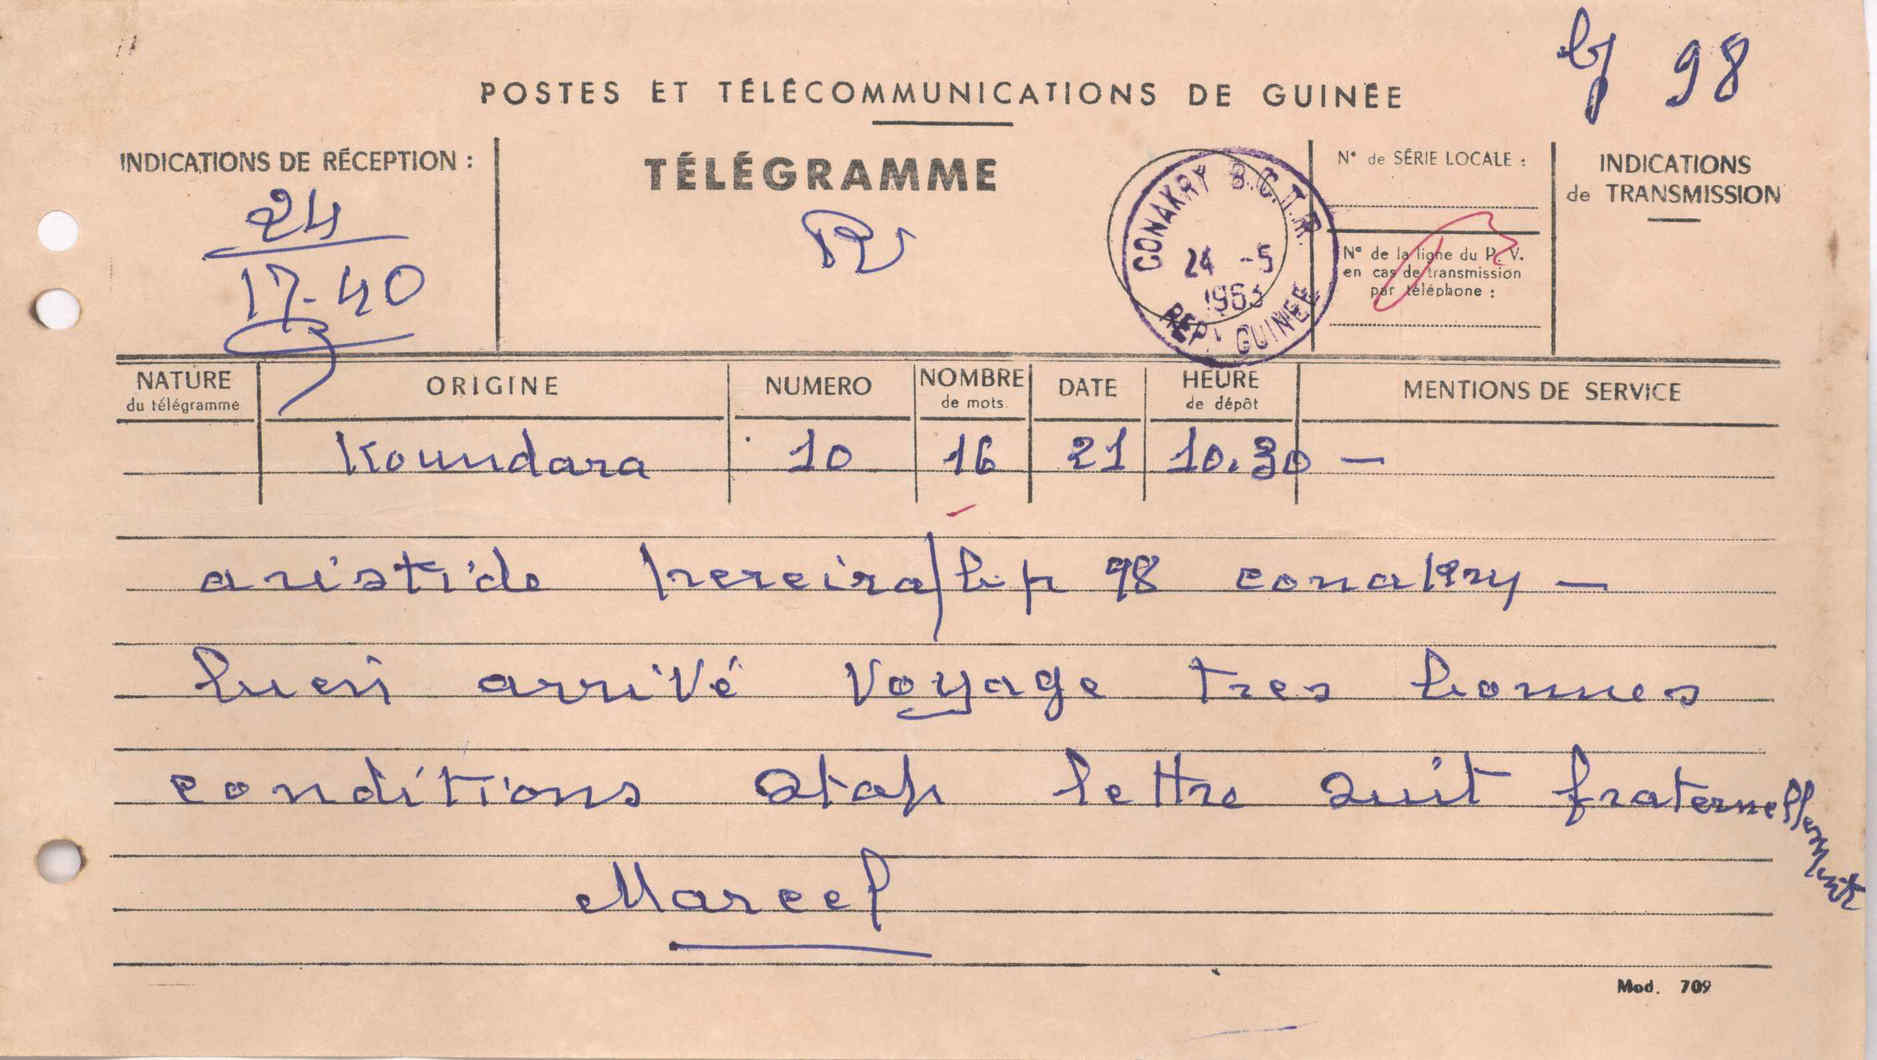 bp 98
POSTES ET TÉLÉCOMMUNICATIONS DE GUINÉE
INDICATIONS DE RÉCEPTION :
24
17-40
TÉLÉGRAMME
CONAKRY B.C.T.R.
24 -5
1963
REP. GUINÉE
N° de SÉRIE LOCALE :
N° de la ligne du P. V.
en cas de transmission
par téléphone :
INDICATIONS
de TRANSMISSION
NATURE
du télégramme
ORIGINE
NUMERO
NOMBRE
de mots
DATE
HEURE
de dépôt
MENTIONS DE SERVICE
Koundara 10 16 21 10.30 —
aristide pereira/bp 98 conakry —
bien arrivé voyage tres bonnes
conditions stop lettre suit fraternellement
Marcel
Mod. 709